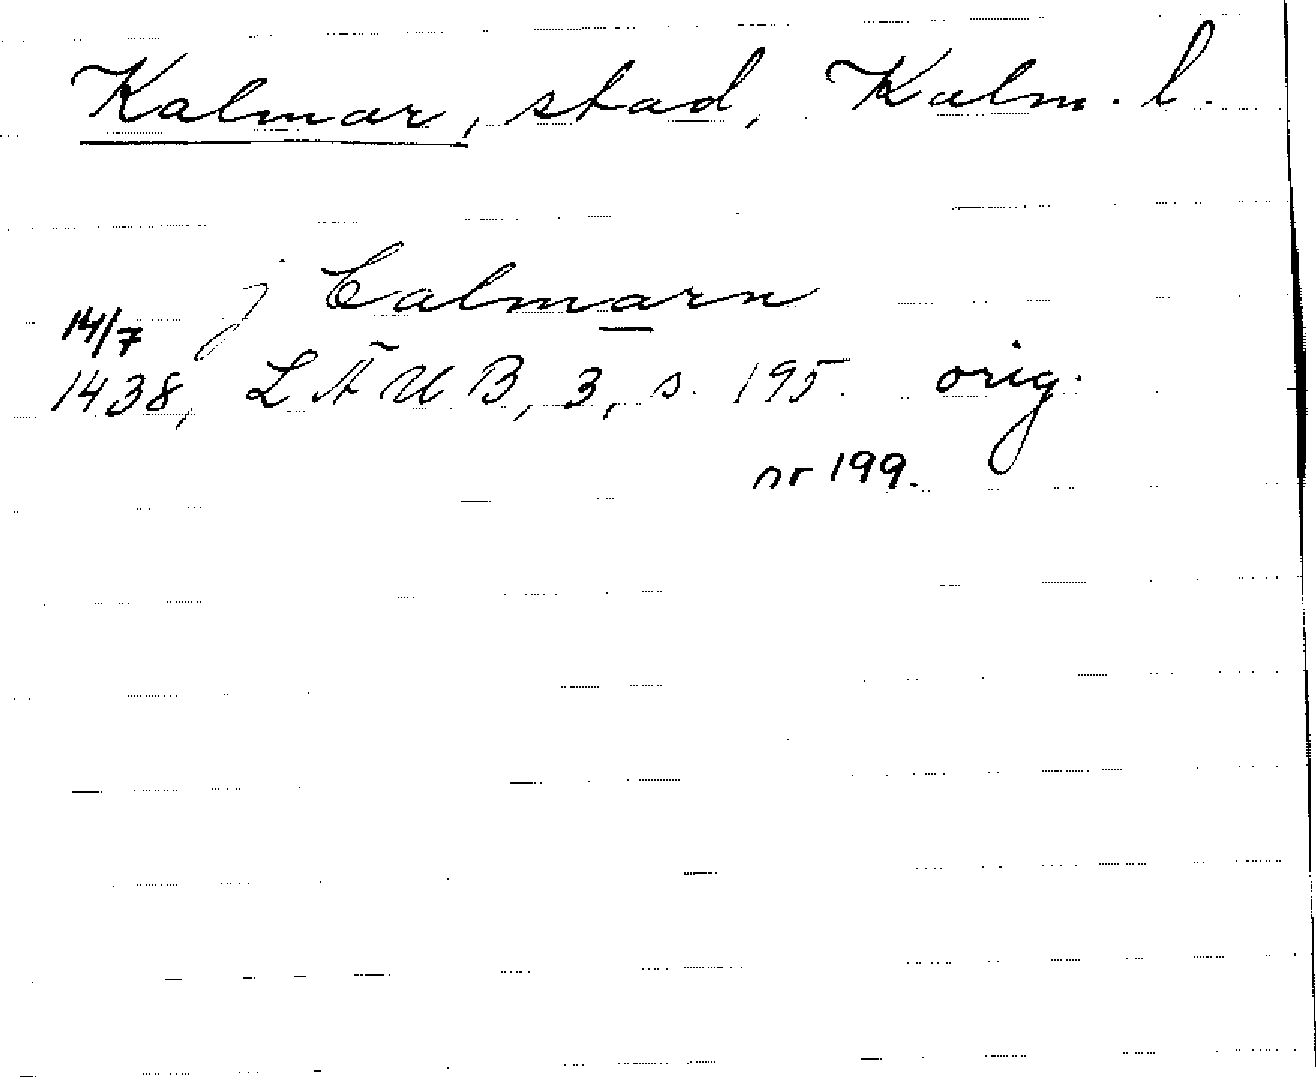 Kalmar, stad, Kalm. l.
j Calmarn
14/7
1438, LÄUB, 3, s. 195. orig.
nr 199.